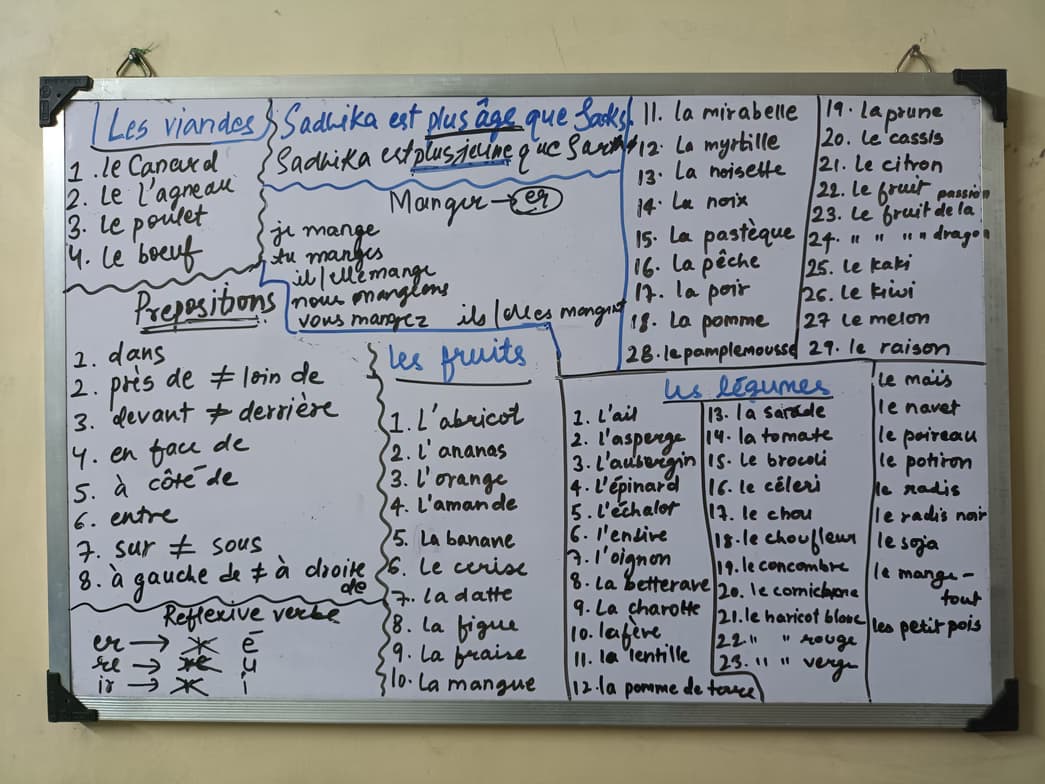 Les viandes
1. le Canard
2. le l'agneau
3. le poulet
4. le boeuf
Sadhika est plus âge que
Sadhika est plus jeune que
Manger → er
je mange
tu manges
il/elle mange
nous mangeons
vous mangez ils/elles
Prepositions
1. dans
2. près de ≠ loin de
3. devant ≠ derrière
4. en face de
5. à côté de
6. entre
7. sur ≠ sous
8. à gauche de ≠ à droite
de
Reflexive verbe
er → é
re → re u
ir → i
les fruits
1. L'abricot
2. L'ananas
3. l'orange
4. L'amande
5. La banane
6. Le cerise
7. La datte
8. La figue
9. La fraise
10. La mangue
11. la mirabelle
12. La myrtille
13. La noisette
14. La noix
15. La pastèque
16. La pêche
17. la poir
18. La pomme
28. le pamplemousse
19. La prune
20. le cassis
21. Le citron
22. Le fruit passion
23. Le fruit de la
24. " " " " dragon
25. Le kaki
26. Le kiwi
27 Le melon
29. le raison
les légumes
1. L'ail
2. l'asperge
3. L'aubergin
4. L'épinard
5. L'échalot
6. l'endive
7. l'oignon
8. La betterave
9. La charotte
10. la fève
11. la lentille
12. la pomme de terre
13. la sarade
14. la tomate
15. Le brocoli
16. le céleri
17. le chou
18. le choufleur
19. le concombre
20. le cornichone
21. le haricot blanc
22. " " rouge
23. " " verge
le maïs
le navet
le poireau
le potiron
le radis
le radis noir
le soja
le mange-
tout
les petit pois